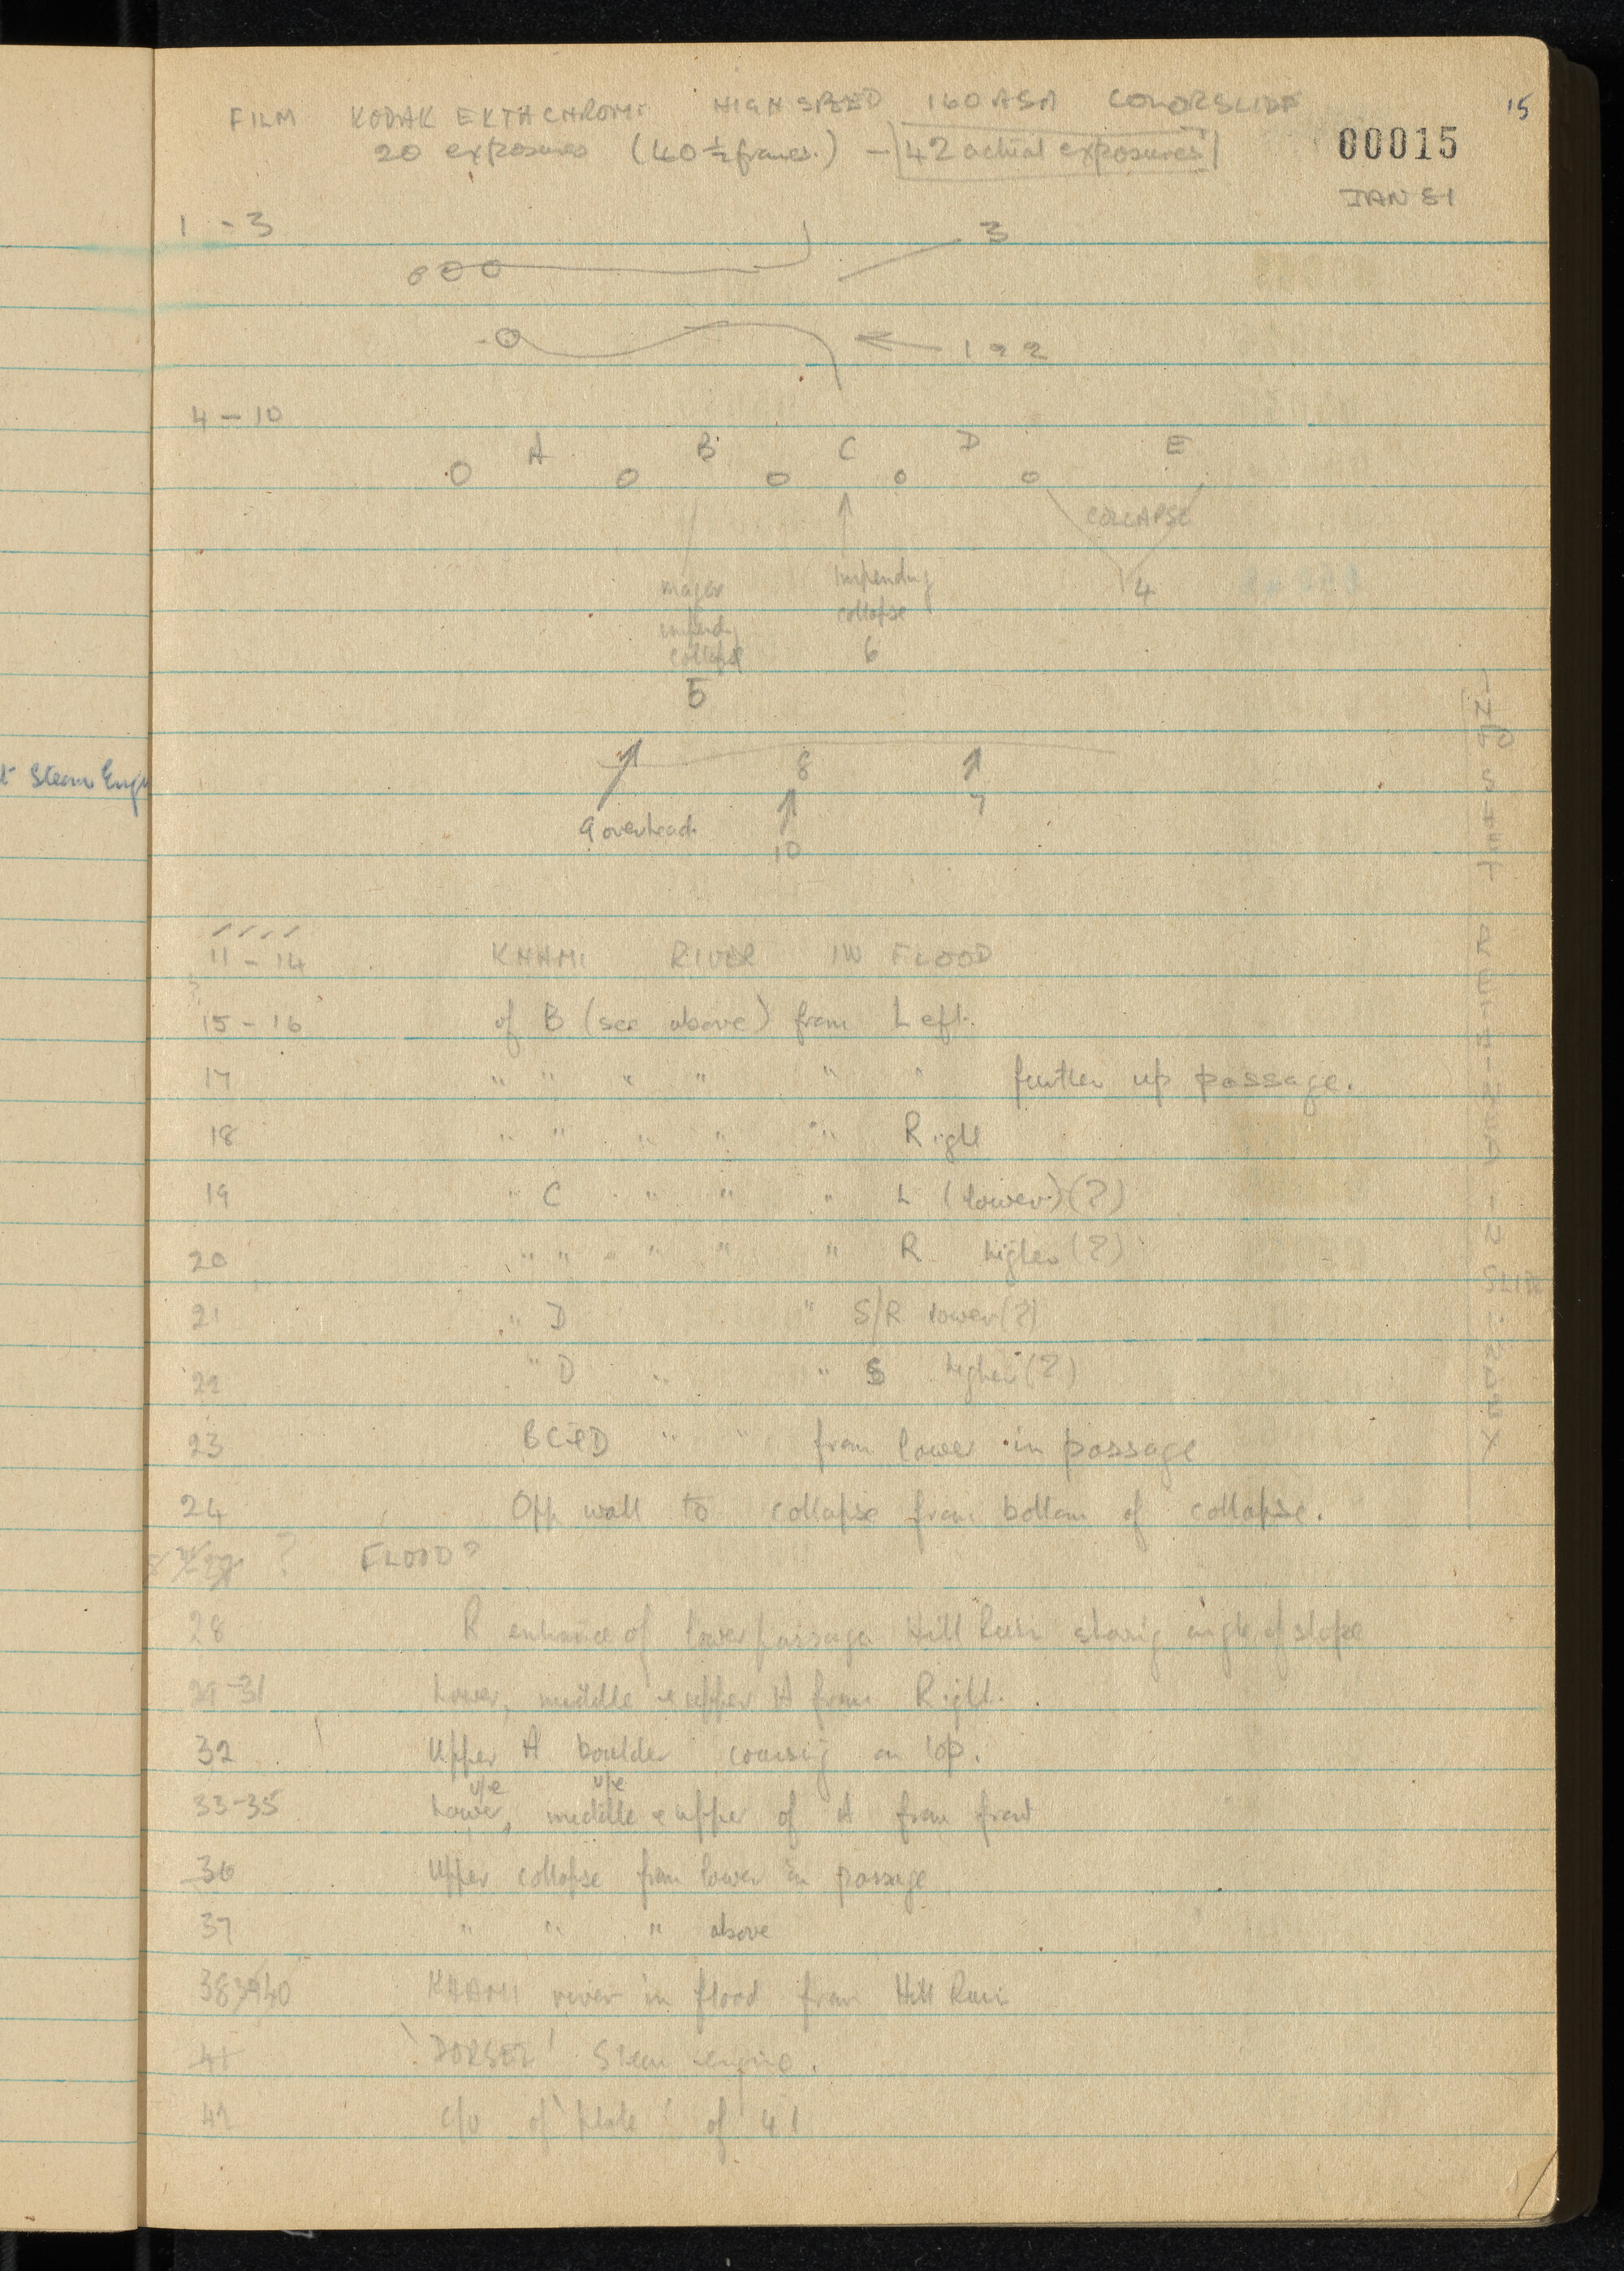 15
FILM KODAK EKTACHROME HIGH SPEED 160 ASA COLORSLIDE
20 exposures (40 ½ frames.) – 42 actual exposures
00015
JAN 81
1 - 3
3
1 & 2
4 – 10
A B C D E
COLLAPSE
major
impendg
collapse
5
Impending
collapse
6
4
t Steam Eng
8
7
9 overhead
10
11 - 14 KHAMI RIVER IN FLOOD
15 - 16 of B (see above) from Left.
17 " " " " " " further up passage.
18 " " " " " Right
19 " C " " " L (lower)(?)
20 " " " " " " R higher (?)
21 " D " S/R lower(?)
22 " D " " S higher (?)
23 BC&D " " from lower in passage
24 Opp wall to collapse from bottom of collapse.
? FLOOD?
28 R entrance of lower passage Hill Ruin showing angle of slope
29-31 Lower, middle & upper A from Right.
32 Upper A boulder coursing on top.
u/e u/e
33-35 Lower, middle & upper of A from front
36 Upper collapse from lower in passage
37 " " " above
38 39 40 KHAMI river in flood from Hill Ruin
41 'DORSET' Steam engine.
42 c/u of 'plate' of 41